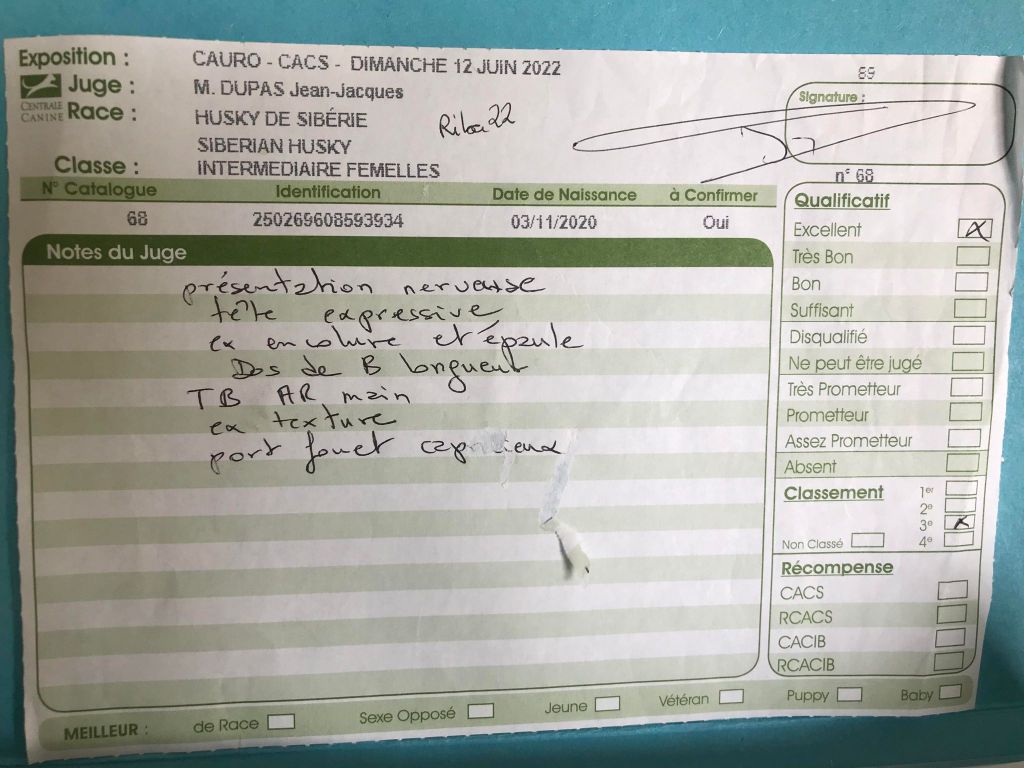 Exposition : CAURO - CACS - DIMANCHE 12 JUIN 2022
Juge : M. DUPAS Jean-Jacques
CENTRALE CANINE
Race : HUSKY DE SIBÉRIE
SIBERIAN HUSKY
Classe : INTERMEDIAIRE FEMELLES
89
Signature :
n° 68
N° Catalogue Identification Date de Naissance à Confirmer
68 250269608593934 03/11/2020 Oui
Notes du Juge
présentation nerveuse
tête expressive
ex encolure et épaule
Dos de B longueur
TB AR main
ex texture
port fouet capricieux
Qualificatif
Excellent X
Très Bon
Bon
Suffisant
Disqualifié
Ne peut être jugé
Très Prometteur
Prometteur
Assez Prometteur
Absent
Classement 1er
2e
3e X
Non Classé 4e
Récompense
CACS
RCACS
CACIB
RCACIB
MEILLEUR : de Race Sexe Opposé Jeune Vétéran Puppy Baby